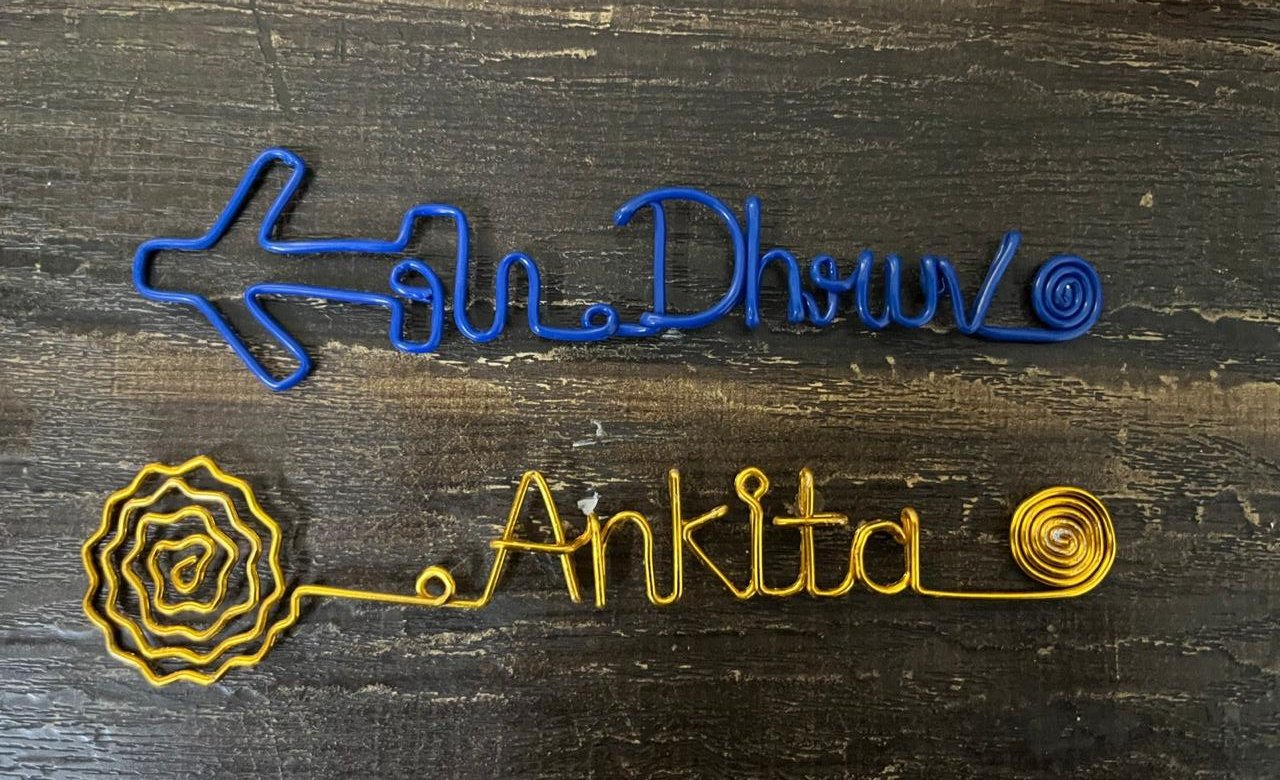 Dhruv
Ankita